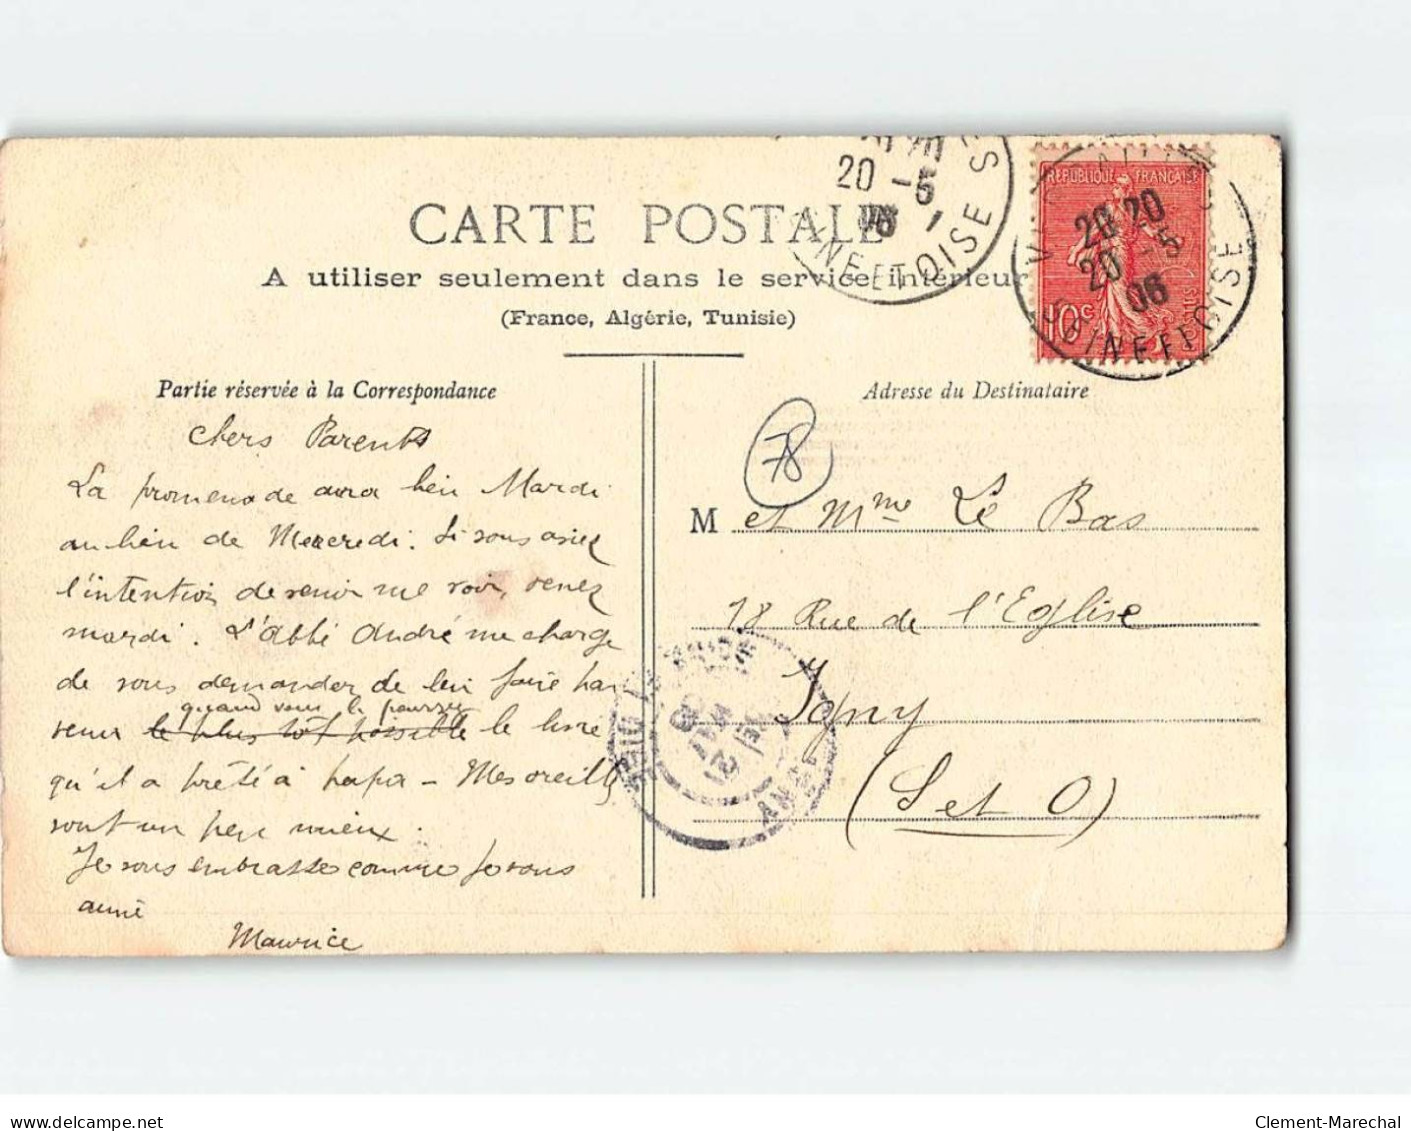 CARTE POSTALE
A utiliser seulement dans le service intérieur
(France, Algérie, Tunisie)
RÉPUBLIQUE FRANÇAISE
10c
POSTES
20 20
20 -5
06
SEINE ET OISE
20 -5
06
SEINE ET OISE
Partie réservée à la Correspondance
chers Parents
La promenade aura lieu Mardi
au lieu de Mercredi. Si vous aviez
l'intention de venir me voir, venez
mardi. L'Abbé André me charge
de vous demander de lui faire par
quand vous le pourrez
venir le plus tôt possible le livre
qu'il a prêté à papa – Mes oreilles
vont un peu mieux.
Je vous embrasse comme je vous
aime
Maurice
Adresse du Destinataire
78
M et Mme Le Bas
18 Rue de l'Eglise
Igny
(S et O)
21
MAI
06
Clement-Marechal
www.delcampe.net